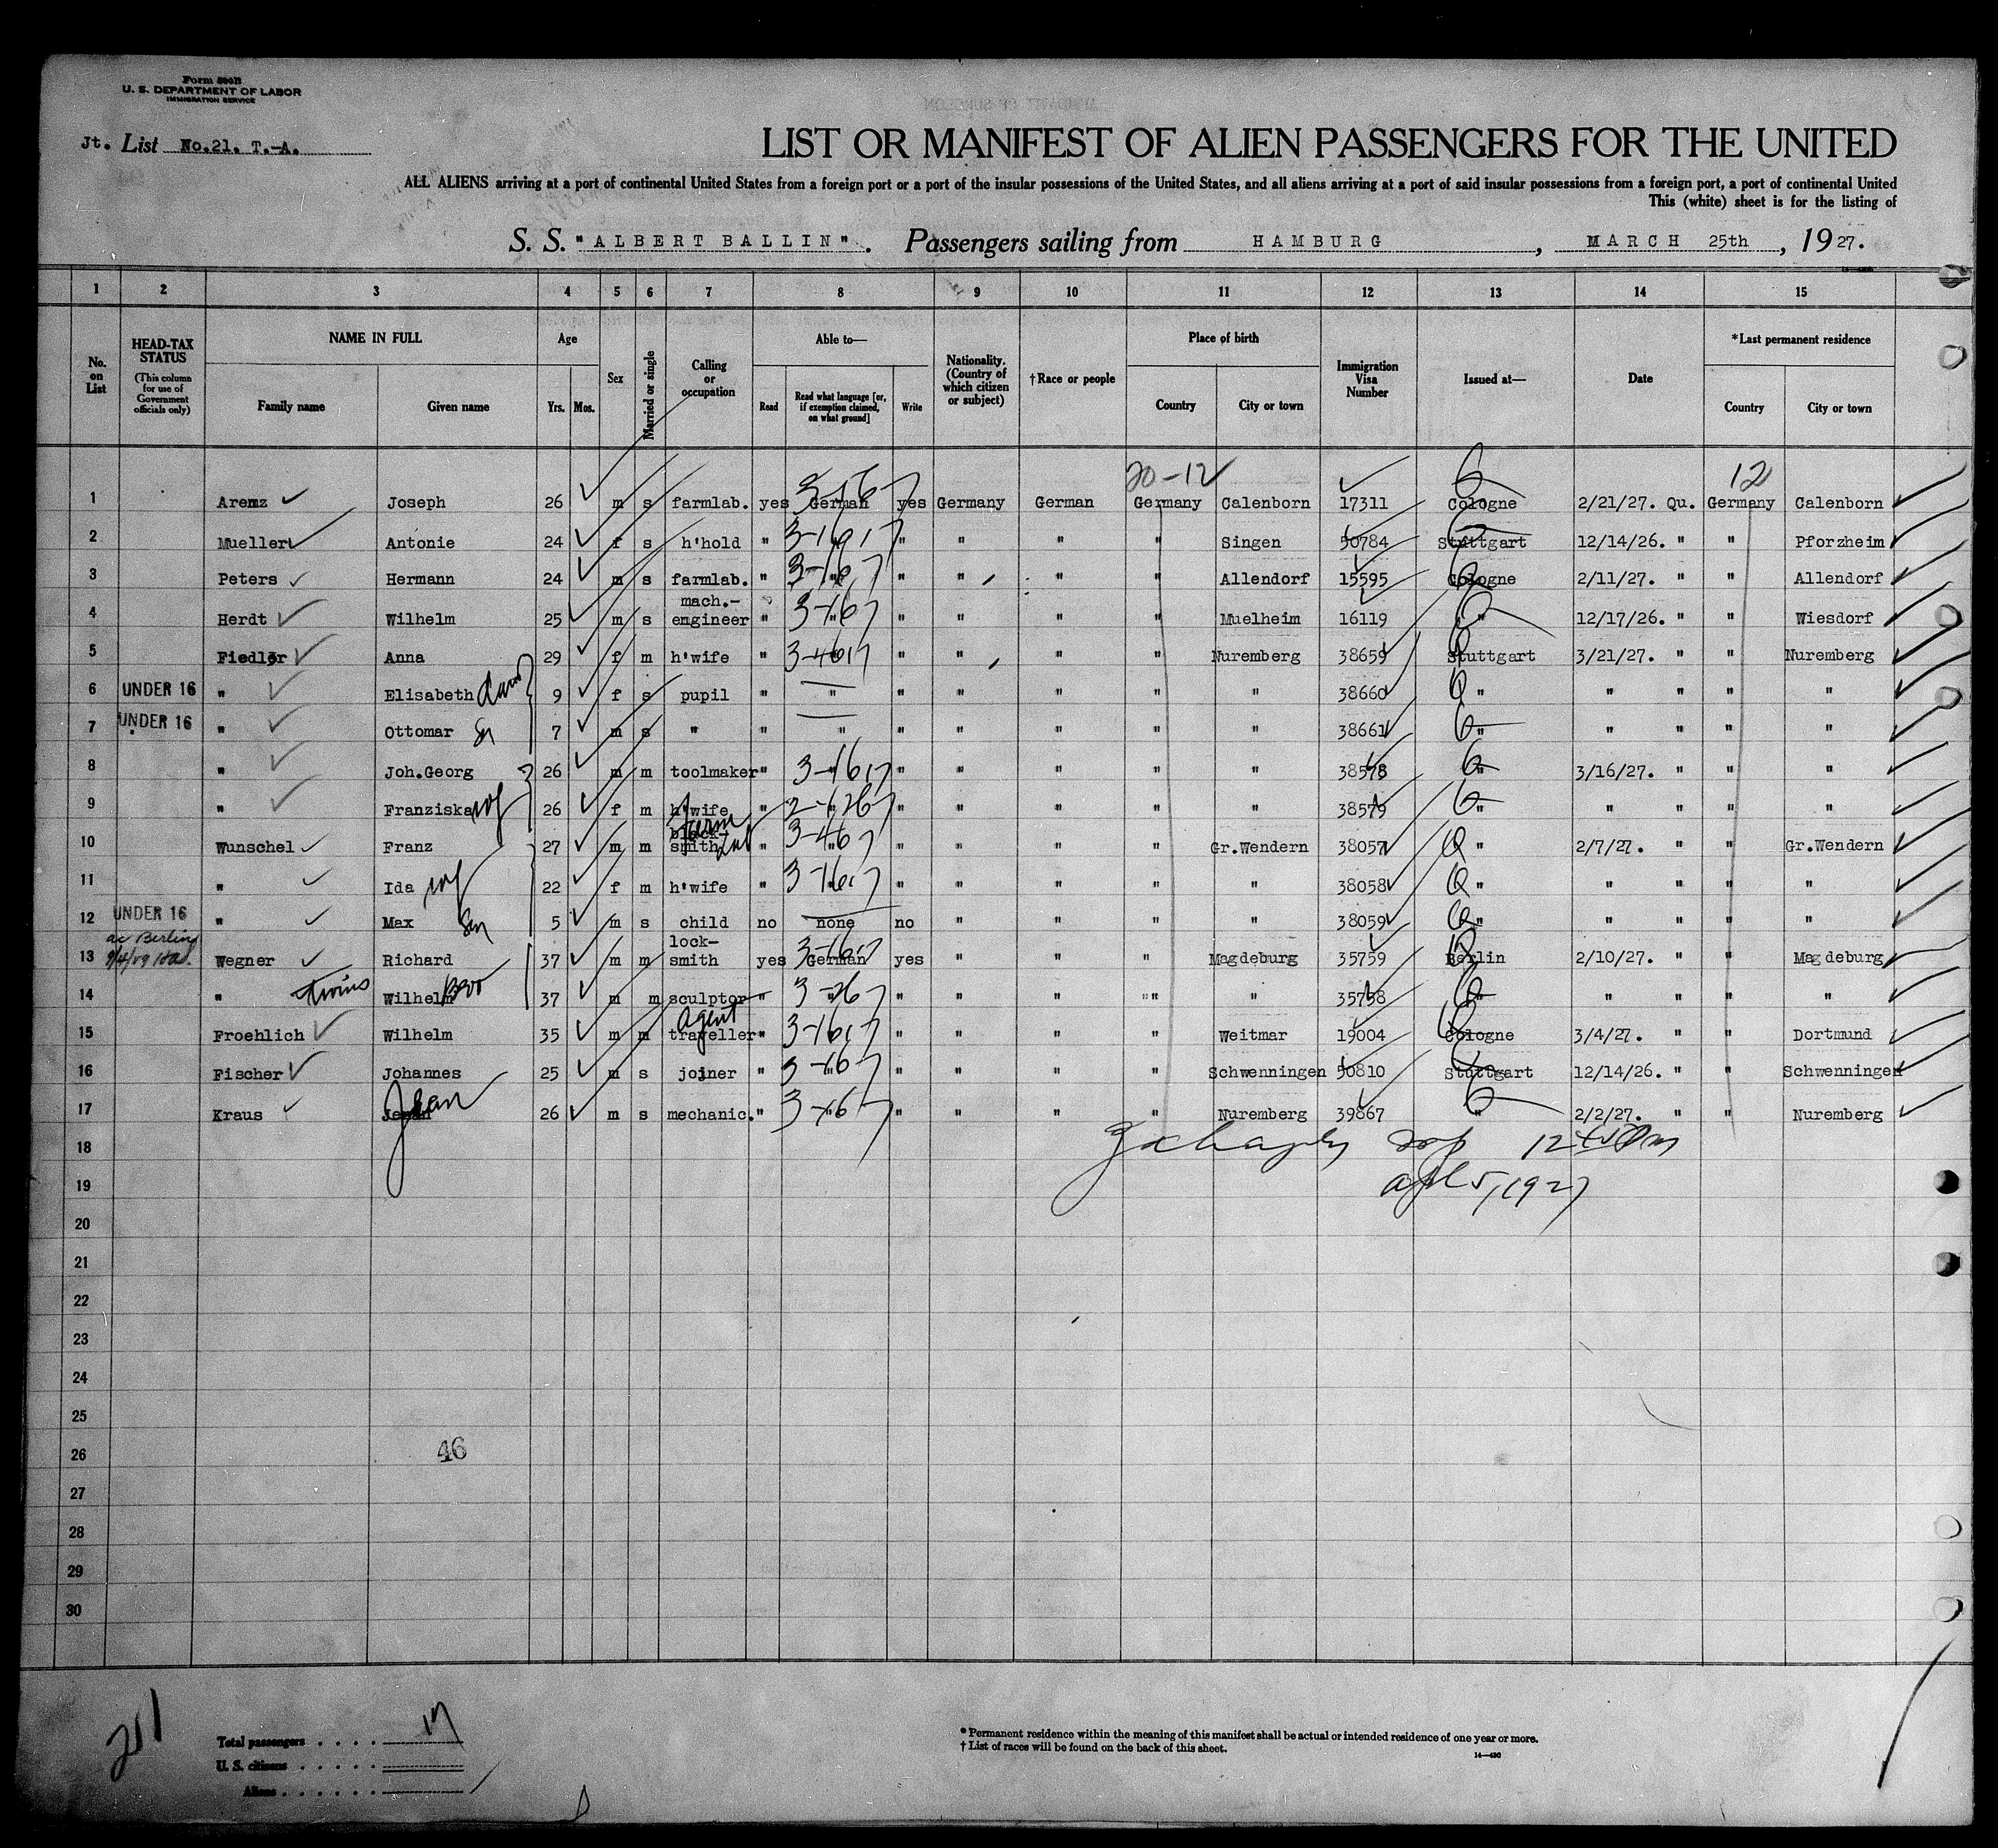 Form 500B
U. S. DEPARTMENT OF LABOR
IMMIGRATION SERVICE
Jt. List No.21. T.-A.
LIST OR MANIFEST OF ALIEN PASSENGERS FOR THE UNITED
ALL ALIENS arriving at a port of continental United States from a foreign port or a port of the insular possessions of the United States, and all aliens arriving at a port of said insular possessions from a foreign port, a port of continental United
This (white) sheet is for the listing of
S. S. "ALBERT BALLIN". Passengers sailing from HAMBURG, MARCH 25th, 1927.
1 2 3 4 5 6 7 8 9 10 11 12 13 14 15
No. on List
HEAD-TAX STATUS (This column for use of Government officials only)
NAME IN FULL Family name Given name
Age Yrs. Mos.
Sex
Married or single
Calling or occupation
Able to— Read Read what language [or, if exemption claimed, on what ground] Write
Nationality. (Country of which citizen or subject)
†Race or people
Place of birth Country City or town
Immigration Visa Number
Issued at—
Date
*Last permanent residence Country City or town
20-12 12
1 Aremz Joseph 26 m s farmlab. yes German yes Germany German Germany Calenborn 17311 Cologne 2/21/27. Qu. Germany Calenborn
2 Mueller Antonie 24 f s h'hold " " " " " " Singen 50784 Stuttgart 12/14/26. " " Pforzheim
3 Peters Hermann 24 m s farmlab. " " " " " " Allendorf 15595 Cologne 2/11/27. " " Allendorf
4 Herdt Wilhelm 25 m s mach.-engineer " " " " " " Muelheim 16119 " 12/17/26. " " Wiesdorf
5 Fiedler Anna 29 f m h'wife " " " " " " Nuremberg 38659 Stuttgart 3/21/27. " " Nuremberg
6 UNDER 16 " Elisabeth 9 f s pupil " " " " " " " 38660 " " " " "
7 UNDER 16 " Ottomar Sn 7 m s " " " " " " " " 38661 " " " " "
8 " Joh.Georg 26 m m toolmaker " " " " " " " 38578 " 3/16/27. " " "
9 " Franziska wf 26 f m h'wife " " " " " " " 38579 " " " " "
10 Wunschel Franz 27 m m black-smith farm lab " " " " " " Gr.Wendern 38057 " 2/7/27. " " Gr.Wendern
11 " Ida wf 22 f m h'wife " " " " " " " 38058 " " " " "
12 UNDER 16 " Max Sn 5 m s child no none no " " " " 38059 " " " " "
13 Wegner Richard 37 m m lock-smith yes German yes " " " Magdeburg 35759 Berlin 2/10/27. " " Magdeburg
14 " twins Wilhelm Bro 37 m m sculptor " " " " " " " 35758 " " " " "
15 Froehlich Wilhelm 35 m m traveller Agent " " " " " " Weitmar 19004 Cologne 3/4/27. " " Dortmund
16 Fischer Johannes 25 m s joiner " " " " " " Schwenningen 50810 Stuttgart 12/14/26. " " Schwenningen
17 Kraus Jean 26 m s mechanic. " " " " " " Nuremberg 39867 " 2/2/27. " " Nuremberg
18
19 5, 1927
20
21
22
23
24
25
26 46
27
28
29
30
211
Total passengers . . . . 17
U. S. citizens . . . . .
Aliens . . . . . .
*Permanent residence within the meaning of this manifest shall be actual or intended residence of one year or more.
†List of races will be found on the back of this sheet.
14—430